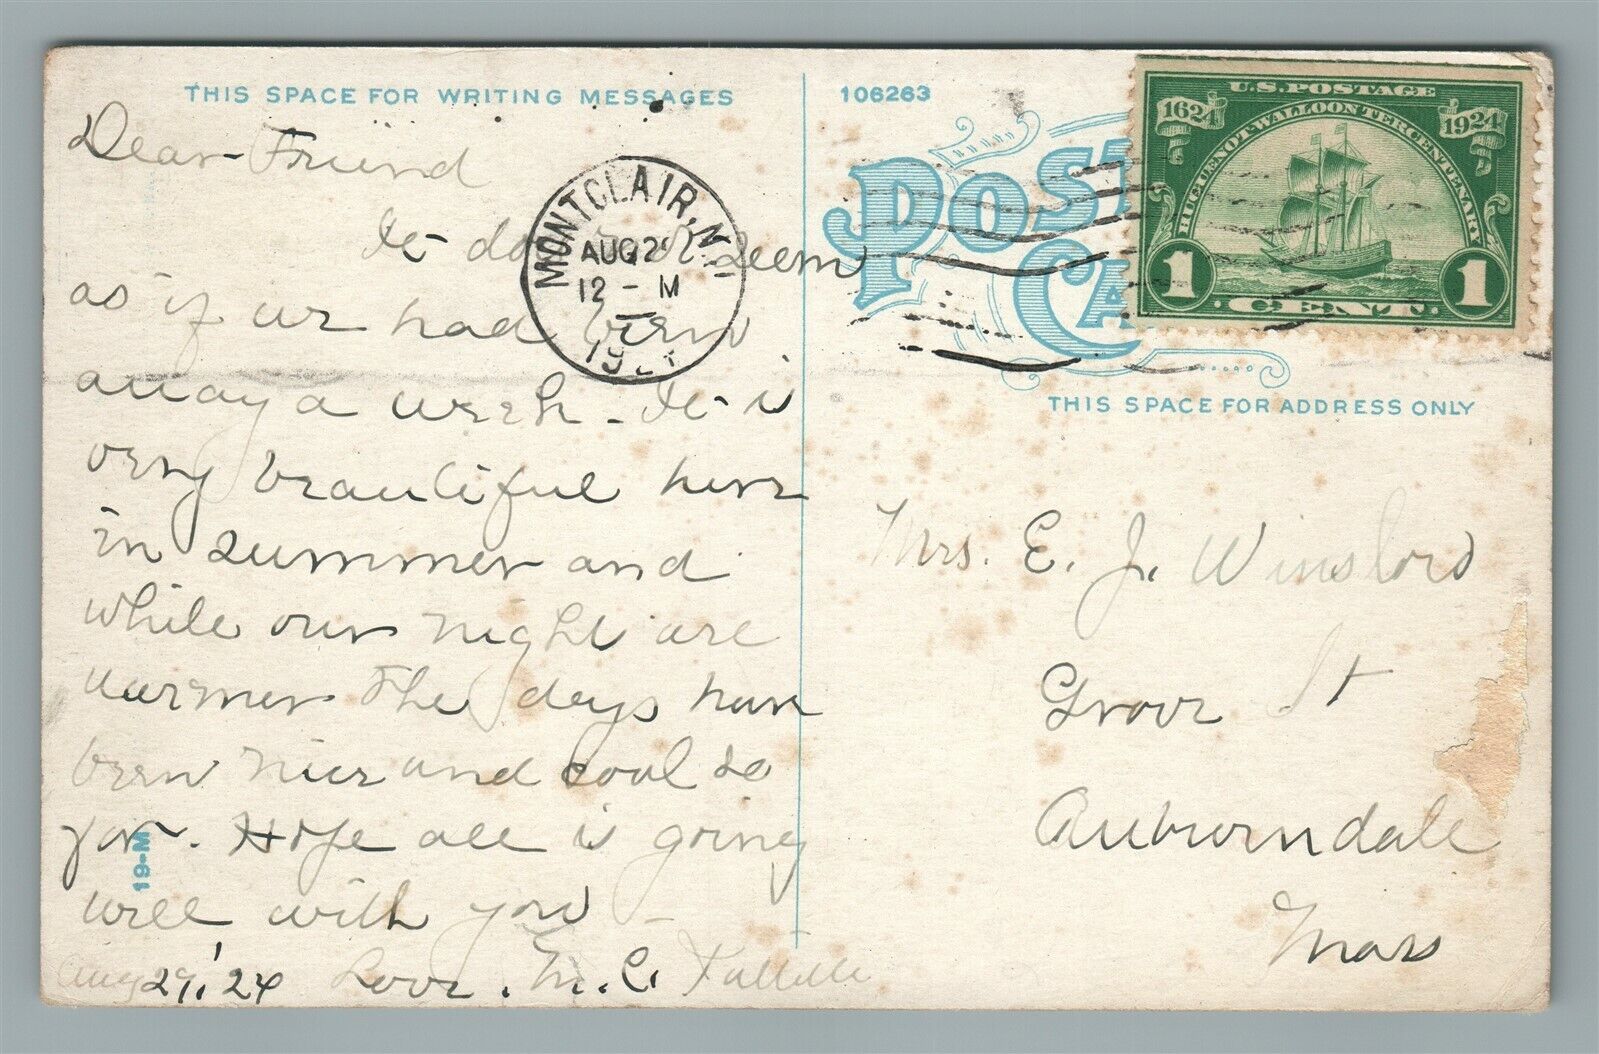 THIS SPACE FOR WRITING MESSAGES
Dear Friend
It does not seem
as if we had been
away a week. It is
very beautiful here
in summer and
while our night are
warmer the days have
been nice and cool so
far. Hope all is going
well with you -
Aug 29, '24 Love. M. C.
19-M
MONTCLAIR, N.J.
AUG 29
12 - M
192
106263
POST
CA
U.S. POSTAGE
1624 HUGUENOT-WALLOON TERCENTENARY 1924
1 CENT 1
THIS SPACE FOR ADDRESS ONLY
Mrs. E. J. Winslow
Grove St
Auburndale
Mass